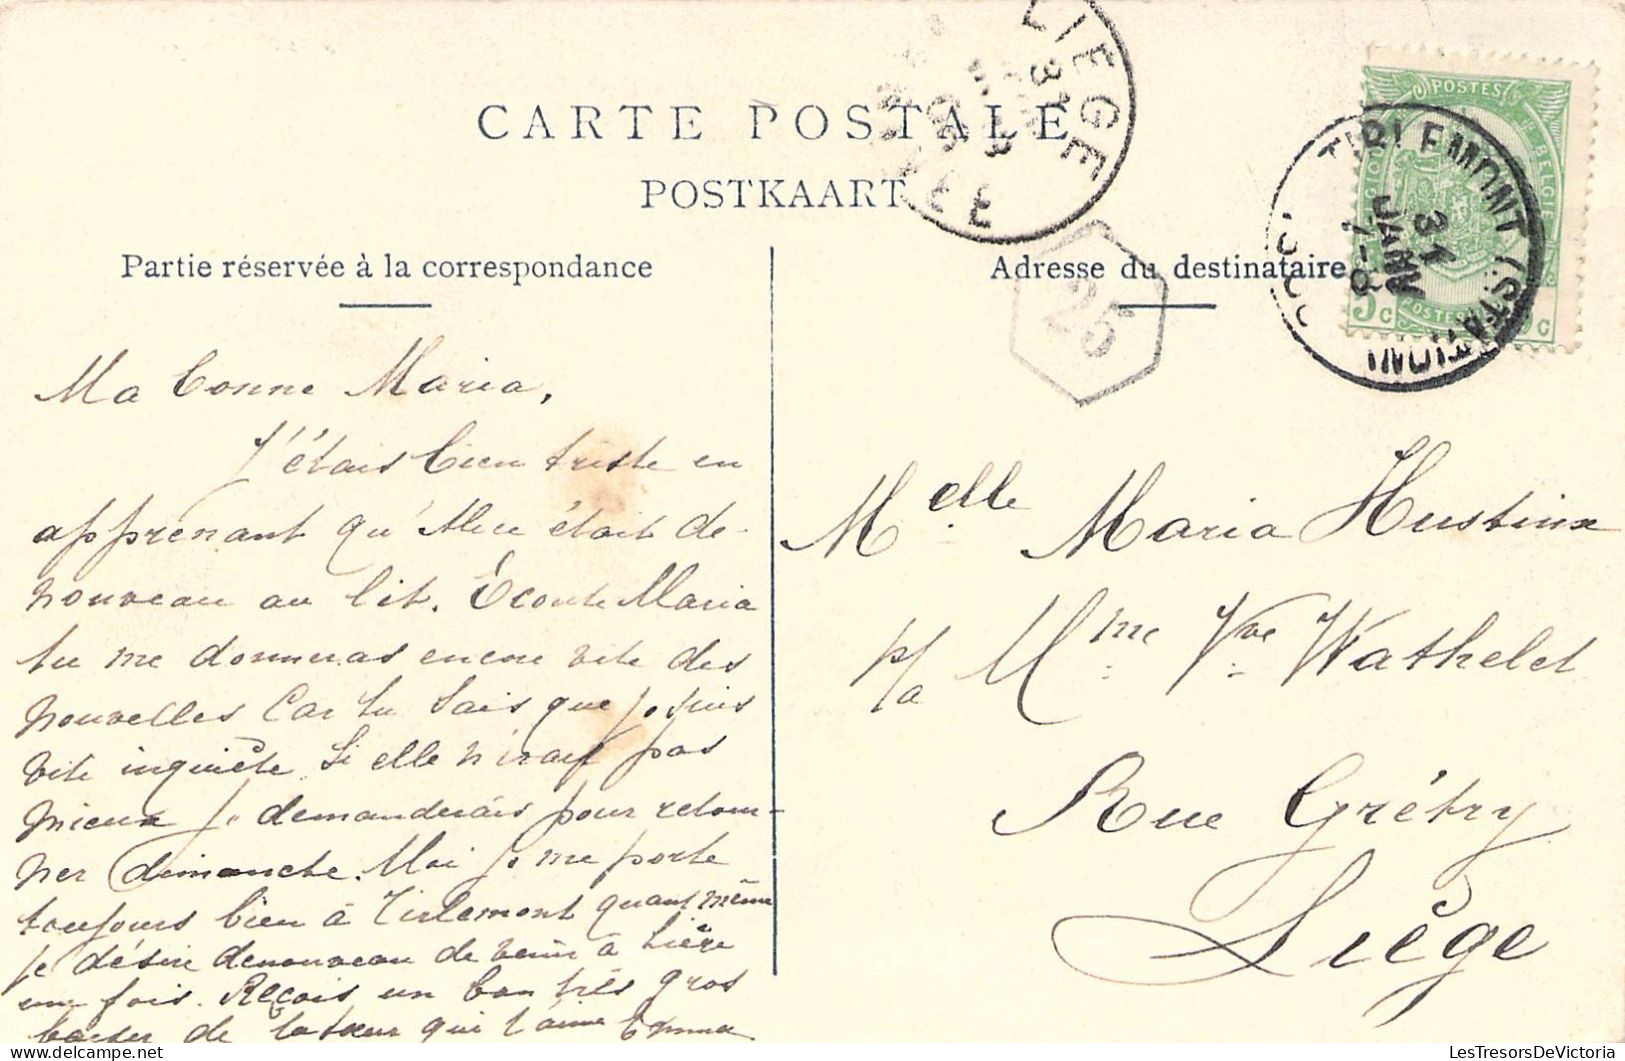 CARTE POSTALE
POSTKAART
LIEGE
31
Partie réservée à la correspondance
Adresse du destinataire
25
POSTES
TIRLEMONT (STATION)
31
JANV
7-8
5 c
POSTES
c
Ma bonne Maria,
J'étais bien triste en
apprenant qu'Alice était de-
nouveau au lit. Écoute Maria
tu me donneras encore vite des
nouvelles car tu sais que je suis
vite inquiète. Si elle n'irait pas
mieux je demanderais pour retour-
ner dimanche. Moi je me porte
toujours bien à Tirlemont quant même
je désire denouveau de venir à Liège
une fois. Reçois un bon très gros
baiser de ta sœur qui t'aime Emma
Melle Maria Hustinx
p/a Mme Vve Wathelet
Rue Grétry
Liège
LesTresorsDeVictoria